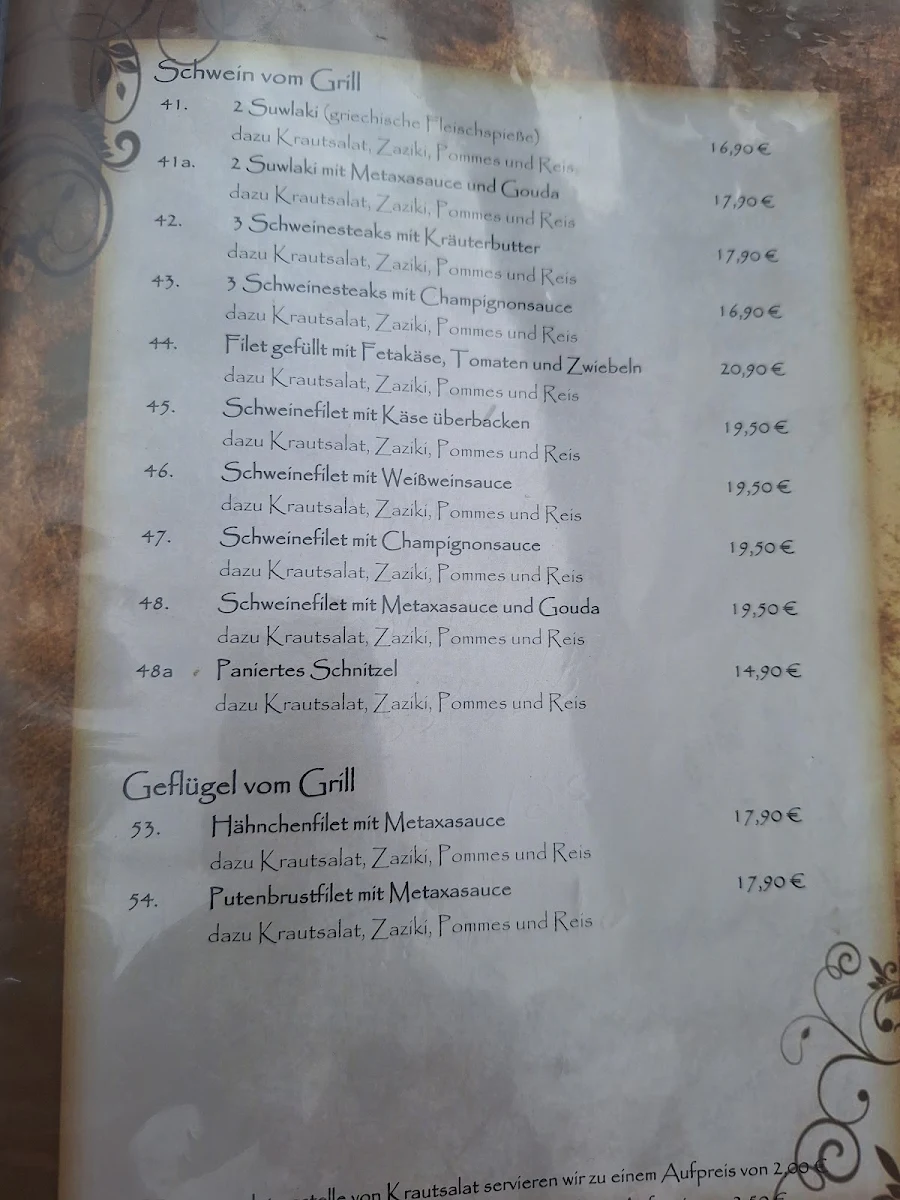 Schwein vom Grill
41. 2 Suwlaki (griechische Fleischspieße)
dazu Krautsalat, Zaziki, Pommes und Reis 16,90 €
41a. 2 Suwlaki mit Metaxasauce und Gouda
dazu Krautsalat, Zaziki, Pommes und Reis 17,90 €
42. 3 Schweinesteaks mit Kräuterbutter 17,90 €
dazu Krautsalat, Zaziki, Pommes und Reis
43. 3 Schweinesteaks mit Champignonsauce 16,90 €
dazu Krautsalat, Zaziki, Pommes und Reis
44. Filet gefüllt mit Fetakäse, Tomaten und Zwiebeln 20,90 €
dazu Krautsalat, Zaziki, Pommes und Reis
45. Schweinefilet mit Käse überbacken 19,50 €
dazu Krautsalat, Zaziki, Pommes und Reis
46. Schweinefilet mit Weißweinsauce 19,50 €
dazu Krautsalat, Zaziki, Pommes und Reis
47. Schweinefilet mit Champignonsauce 19,50 €
dazu Krautsalat, Zaziki, Pommes und Reis
48. Schweinefilet mit Metaxasauce und Gouda 19,50 €
dazu Krautsalat, Zaziki, Pommes und Reis
48a Paniertes Schnitzel 14,90 €
dazu Krautsalat, Zaziki, Pommes und Reis
Geflügel vom Grill
53. Hähnchenfilet mit Metaxasauce 17,90 €
dazu Krautsalat, Zaziki, Pommes und Reis
54. Putenbrustfilet mit Metaxasauce 17,90 €
dazu Krautsalat, Zaziki, Pommes und Reis
von Krautsalat servieren wir zu einem Aufpreis von 2,00 €